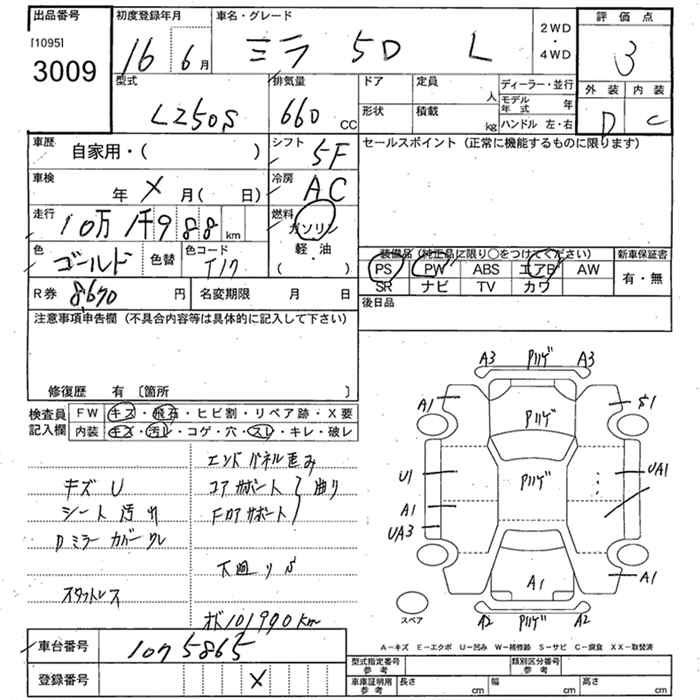 出品番号
[1095]
3009
初度登録年月
16 6月
車名・グレード
ミラ 5D L
2WD
・
4WD
評価点
3
外装 内装
D C
型式
L250S
排気量
660 CC
ドア
形状
定員 人
積載 kg
ディーラー・並行
モデル年式 年
ハンドル 左・右
車歴
自家用・( )
シフト
5F
セールスポイント(正常に機能するものに限ります)
車検
年 X 月( 日)
冷房
AC
走行
10万 1千 9 8 8 km
燃料
ガソリン
軽・油
( )
色
ゴールド
色替
色コード
T17
R券 8670 円
名変期限 月 日
装備品(純正品に限り○をつけてください)
新車保証書
PS PW ABS エアB AW
有・無
SR ナビ TV カワ
後日品
注意事項申告欄(不具合内容等は具体的に記入して下さい)
修復歴 有〔箇所 〕
検査員
記入欄
FW キズ・飛石・ヒビ割・リペア跡・X要
内装 キズ・汚レ・コゲ・穴・スレ・キレ・破レ
エンドパネル歪み
キズ U
コアサポート
曲り
シート汚れ
Fロアサポート
Dミラーカバーワレ
下廻りS
スタットレス
オド101990km
A3 Pハゲ A3
A1
S1
Pハゲ
U1
Pハゲ
UA1
A1
UA3
A1
A1
スペア
A2 Pハゲ A2
A-キズ E-エクボ U-凹み W-補修跡 S-サビ C-腐食 XX-取替済
車台番号
1075865
登録番号
X
型式指定番号
参考
類別区分番号
参考
車庫証明用
参考
長さ cm
幅 cm
高さ cm